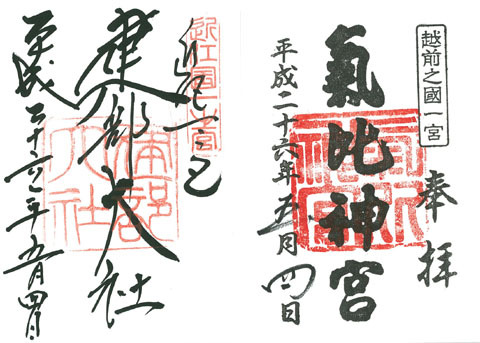 越前之國一宮
奉拝
氣比神宮
平成二十六年五月四日
近江国一之宮
建部大社
平成二十六年五月四日